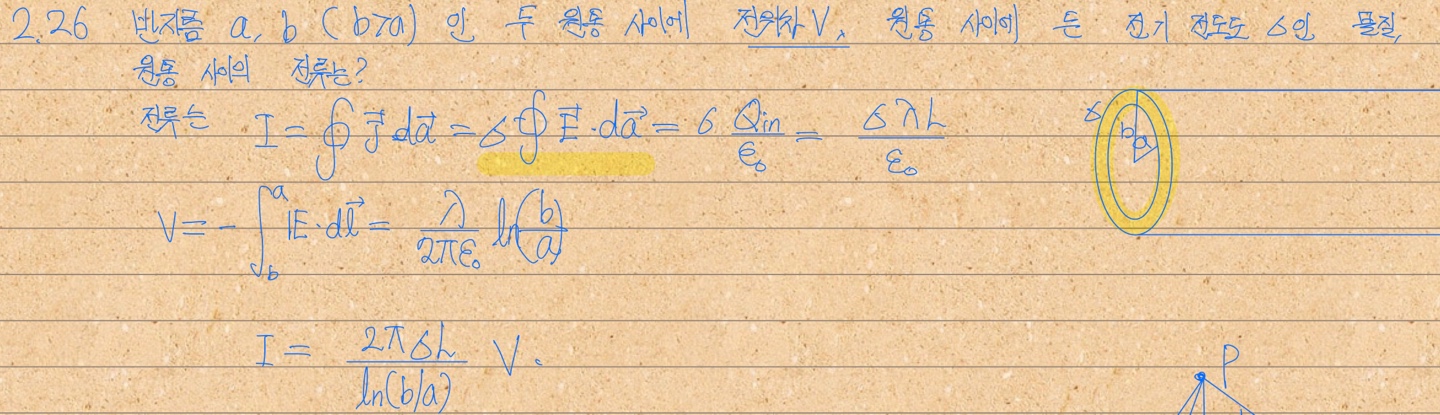 2.26 반지름 a, b (b>a) 인 두 원통 사이에 전위차 V, 원통 사이에 든 전기 전도도 σ인 물질,
원통 사이의 전류는?
전류는 I = ∮ J⃗·da⃗ = σ ∮ E⃗·da⃗ = σ Qin/ε₀ = σλL/ε₀
σ b a
V = -∫_b^a E·dl⃗ = λ/2πε₀ ln(b/a)
I = 2πσL/ln(b/a) V.
P